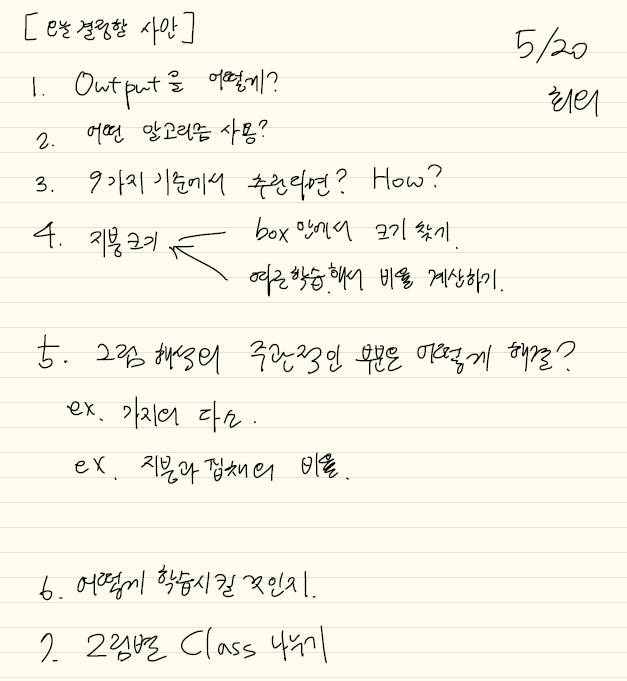 [오늘 결정할 사안]
5/20
회의
1. Output을 어떻게?
2. 어떤 알고리즘 사용?
3. 9가지 기준에서 추린다면? How?
4. 지붕크기 ← box 안에서 크기 찾기.
학습해서 비율 계산하기.
5. 그림 해석의 주관적인 부분은 어떻게 해결?
ex. 가지의 다소.
ex. 지붕과 집체의 비율.
6. 어떻게 학습시킬 것인지.
7. 그림별 Class 나누기